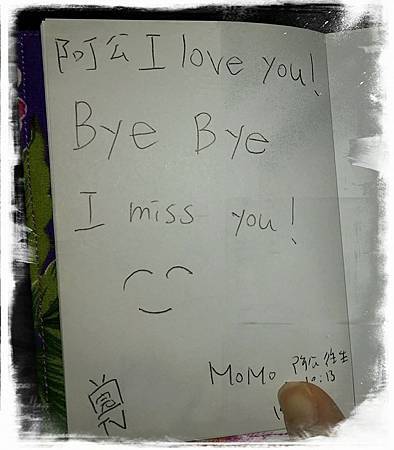 阿公 I love you!
Bye Bye
I miss you!
MoMo 阿公往生
10:13